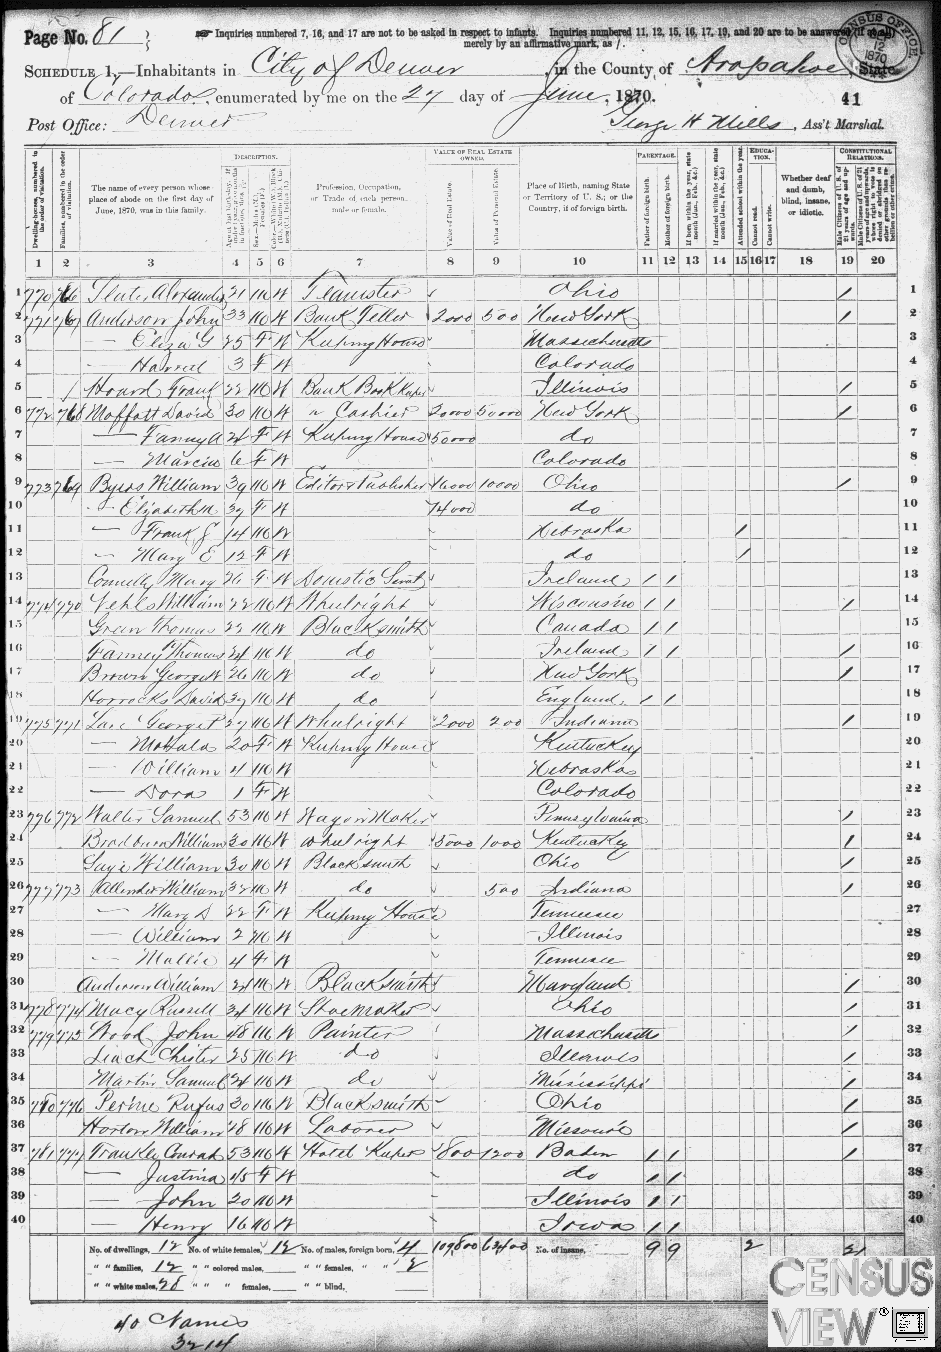 Page No. 81
Inquiries numbered 7, 16, and 17 are not to be asked in respect to infants. Inquiries numbered 11, 12, 15, 16, 17, 19, and 20 are to be answered (if at all)
merely by an affirmative mark, as /.
CENSUS OFFICE 1870
SCHEDULE 1.—Inhabitants in City of Denver, in the County of Arapahoe, State
of Colorado, enumerated by me on the 27 day of June, 1870. 41
Post Office: Denver George H Mills, Ass't Marshal.
DESCRIPTION. VALUE OF REAL ESTATE OWNED. PARENTAGE. EDUCATION. CONSTITUTIONAL RELATIONS.
Dwelling-houses, numbered in the order of visitation.
Families, numbered in the order of visitation.
The name of every person whose place of abode on the first day of June, 1870, was in this family.
Profession, Occupation, or Trade of each person, male or female.
Value of Real Estate
Value of Personal Estate
Place of Birth, naming State or Territory of U. S.; or the Country, if of foreign birth.
Father of foreign birth.
Mother of foreign birth.
Attended school within the year.
Cannot read.
Cannot write.
Whether deaf and dumb, blind, insane, or idiotic.
1 2 3 4 5 6 7 8 9 10 11 12 13 14 15 16 17 18 19 20
1 770 766 Alexander 21 M W Teamster Ohio / 1
2 771 767 Anderson John 33 M W Bank Teller 2000 500 New York / 2
3 — Eliza G 25 F W Keeping House Massachusetts 3
4 — 3 F W Colorado 4
5 Frank 22 M W Bank Book Keeper Illinois / 5
6 772 768 Moffatt David 30 M W " Cashier 20000 50000 New York / 6
7 — Fanny A 24 F W Keeping House 50000 do 7
8 — Marcia 6 F W Colorado 8
9 773 769 Byers William 39 M W Editor & Publisher 16000 10000 Ohio / 9
10 — Elizabeth M F W 14000 do 10
11 — Frank S 14 M W Nebraska / 11
12 — Mary E 12 F W do / 12
13 Connelly Mary 26 F W Domestic Servt Ireland / / 13
14 774 770 William 22 M W Wheelright Wisconsin / / / 14
15 Green Thomas 22 M W Blacksmith Canada / / 15
16 Thomas 24 M W do Ireland / / / 16
17 Brown George W 26 M W do New York / 17
18 Horrocks David M W do England / / 18
19 775 771 George T 27 M W Wheelright 2000 200 Indiana / 19
20 — 20 F W Keeping House Kentucky 20
21 — William 4 M W Nebraska 21
22 — Dora 1 F W Colorado 22
23 776 772 Walter Samuel 53 M W Wagon Maker Pennsylvania / 23
24 Bradburn William 30 M W Wheelright 5000 1000 Kentucky / 24
25 William 30 M W Blacksmith Ohio / 25
26 777 773 Allender William 32 M W do 500 Indiana / 26
27 — Mary D 22 F W Keeping House Tennessee 27
28 — William 2 M W Illinois 28
29 — Mollie 4 F W Tennessee 29
30 Anderson William 24 M W Blacksmith Maryland / 30
31 778 774 Macy Russell 34 M W Shoe Maker Ohio / 31
32 779 775 Wood John 48 M W Painter Massachusetts / 32
33 Chester 25 M W do Illinois / 33
34 Martin Samuel 24 M W do Mississippi / 34
35 780 776 Perine Rufus 30 M W Blacksmith Ohio / 35
36 Horton William 28 M W Laborer Missouri / 36
37 781 777 Conrad 53 M W Hotel Keeper 800 1200 Baden / / / 37
38 — Justina 45 F W do / / 38
39 — John 20 M W Illinois / / 39
40 — Henry 16 M W Iowa / / 40
No. of dwellings, 12 No. of white females, 12 No. of males, foreign born, 4 109800 63400 No. of insane, 9 9 2 21
" " families, 12 " " colored males, " " females, " " 2
" " white males, 28 " " " females, " " blind,
40 Names
3214
CENSUS
VIEW